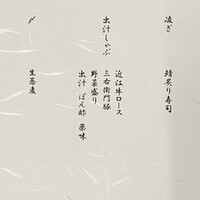 凌ぎ
鯖炙り寿司
出汁しゃぶ
近江牛ロース
三右衛門豚
野菜盛り
出汁 ぽん酢 薬味
〆
生蕎麦